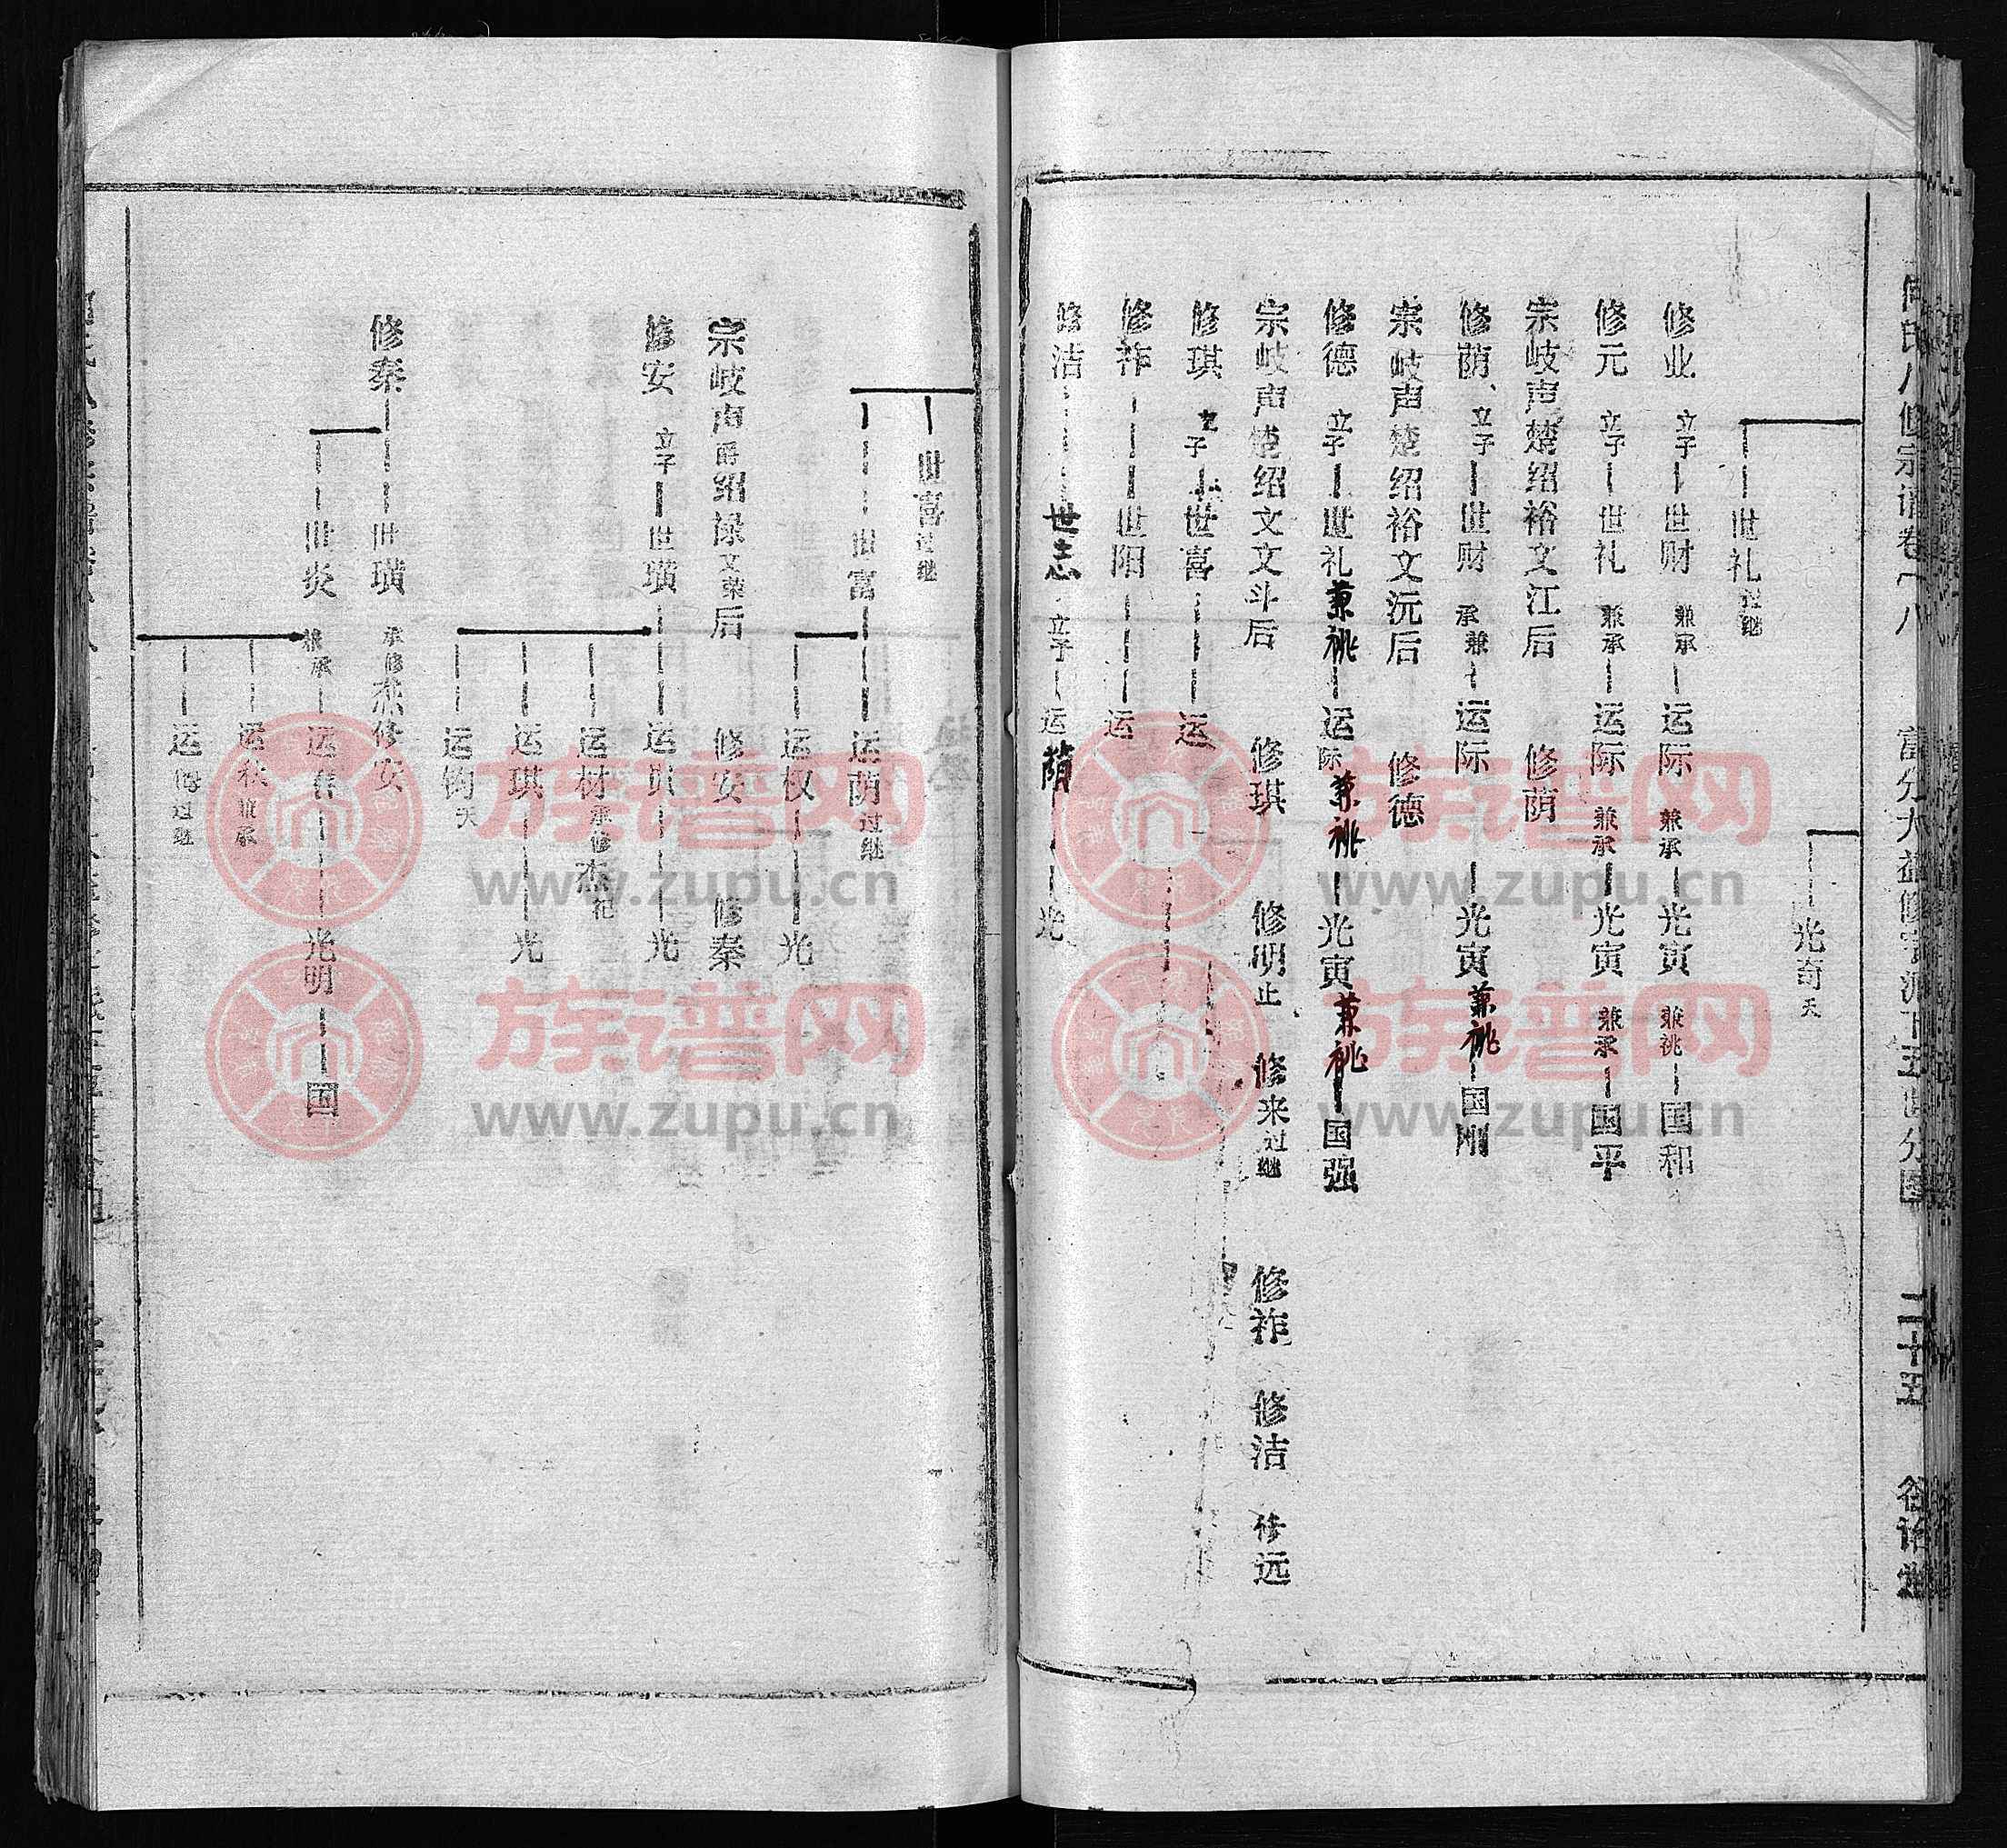 修宗谱卷
二十五
光奇天
世礼过继
修业 立子 世财 兼承 运际 兼承 光寅 兼祧 国和
修元 立子 世礼 兼承 运际 兼承 光寅 兼承 国平
宗岐声楚绍裕文江后 修荫
修荫 立子 世财 承兼 运际 光寅兼祧 国刚
宗岐声楚绍裕文沅后 修德
修德 立子 世礼兼祧 运际兼祧 光寅兼祧 国强
宗岐声楚绍文文斗后 修琪 修明止 修来过继 修祚 修洁 修远
修琪 立子 世喜 运
修祚 世阳 运
修洁 世志 立子 运荫 光
世喜过继
世富 运荫过继
运权 光
宗岐声爵绍禄文荣后 修安 修秦
修安 立子 世璜 光
运材承修杰祀
运琪 光
运钧天
修秦 世璜 承修杰修安
世炎 兼承 光明 国
运秋兼承
过继
族谱网
www.zupu.cn
族谱网
www.zupu.cn
族谱网
www.zupu.cn
族谱网
www.zupu.cn